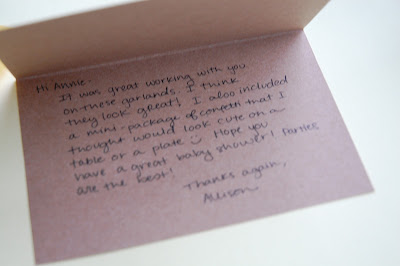 Hi Annie-
It was great working with you
on these garlands. I think
they look great! I also included
a mini-package of confetti that I
thought would look cute on a
table or a plate :) Hope you
have a great baby shower! Parties
are the best!
Thanks again,
Allison